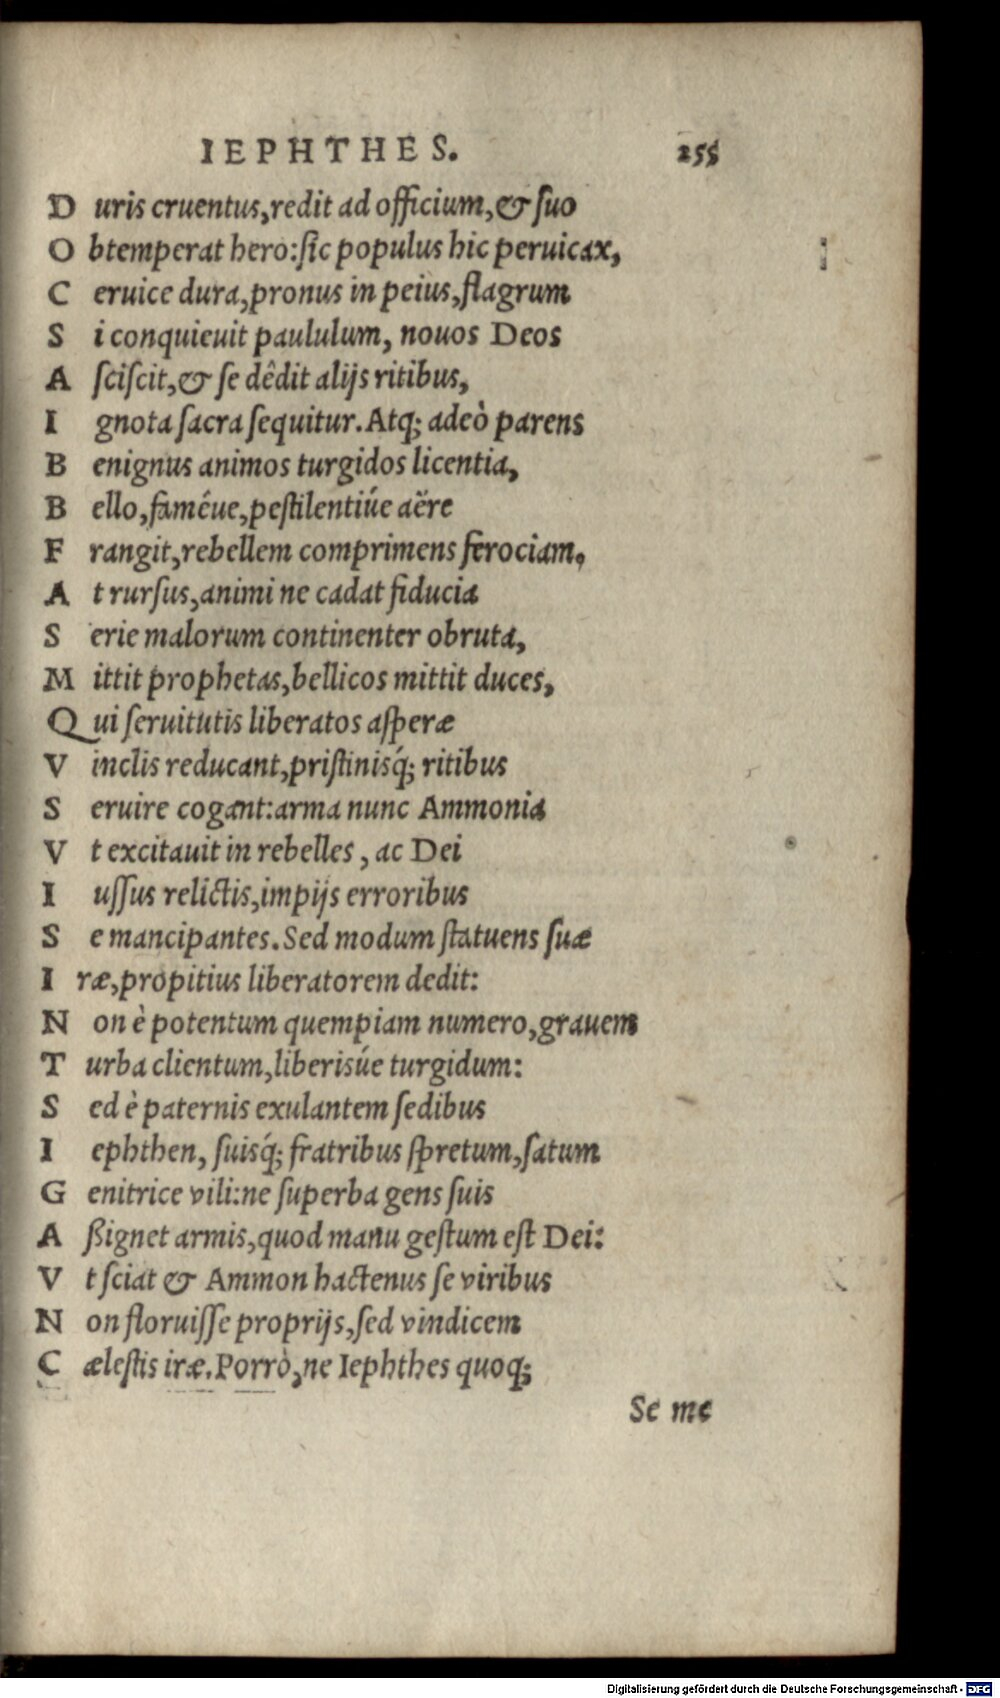 IEPHTHES. 255
D uris cruentus,redit ad officium,& ſuo
O btemperat hero:ſic populus hic peruicax,
C eruice dura,pronus in peius,flagrum
S i conquieuit paululum, nouos Deos
A ſciſcit,& ſe dêdit alijs ritibus,
I gnota ſacra ſequitur.Atq; adeò parens
B enignus animos turgidos licentia,
B ello,faméue,peſtilentiúe aëre
F rangit,rebellem comprimens ferociam.
A t rurſus,animi ne cadat fiducia
S erie malorum continenter obruta,
M ittit prophetas,bellicos mittit duces,
Q ui ſeruitutis liberatos aſperæ
V inclis reducant,priſtinisq́; ritibus
S eruire cogant:arma nunc Ammonia
V t excitauit in rebelles , ac Dei
I uſſus relictis,impijs erroribus
S e mancipantes.Sed modum ſtatuens ſuæ
I ræ,propitius liberatorem dedit:
N on è potentum quempiam numero,grauem
T urba clientum,liberisúe turgidum:
S ed è paternis exulantem ſedibus
I ephthen, ſuisq́; fratribus ſpretum,ſatum
G enitrice vili:ne ſuperba gens ſuis
A ßignet armis,quod manu geſtum eſt Dei:
V t ſciat & Ammon hactenus ſe viribus
N on floruiſſe proprijs,ſed vindicem
C æleſtis iræ.Porrò,ne Iephthes quoq;
Se me
Digitalisierung gefördert durch die Deutsche Forschungsgemeinschaft - DFG